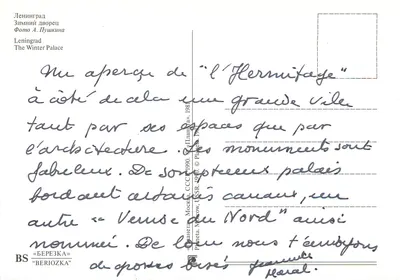 Ленинград
Зимний дворец
Фото А. Пушкина
Leningrad
The Winter Palace
Un aperçu de "l'Hermitage"
à côté de cela une grande ville
tant par ses espaces que par
l'architecture. Les monuments sont
fabuleux. De somptueux palais
bordant certains canaux, un
autre "Venise du Nord" ainsi
nommée. De loin nous t'envoyons
de grosses bises
BS «БЕРЕЗКА»
"BERIOZKA"